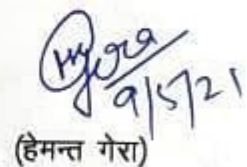 9/5/21
(हेमन्त गेरा)